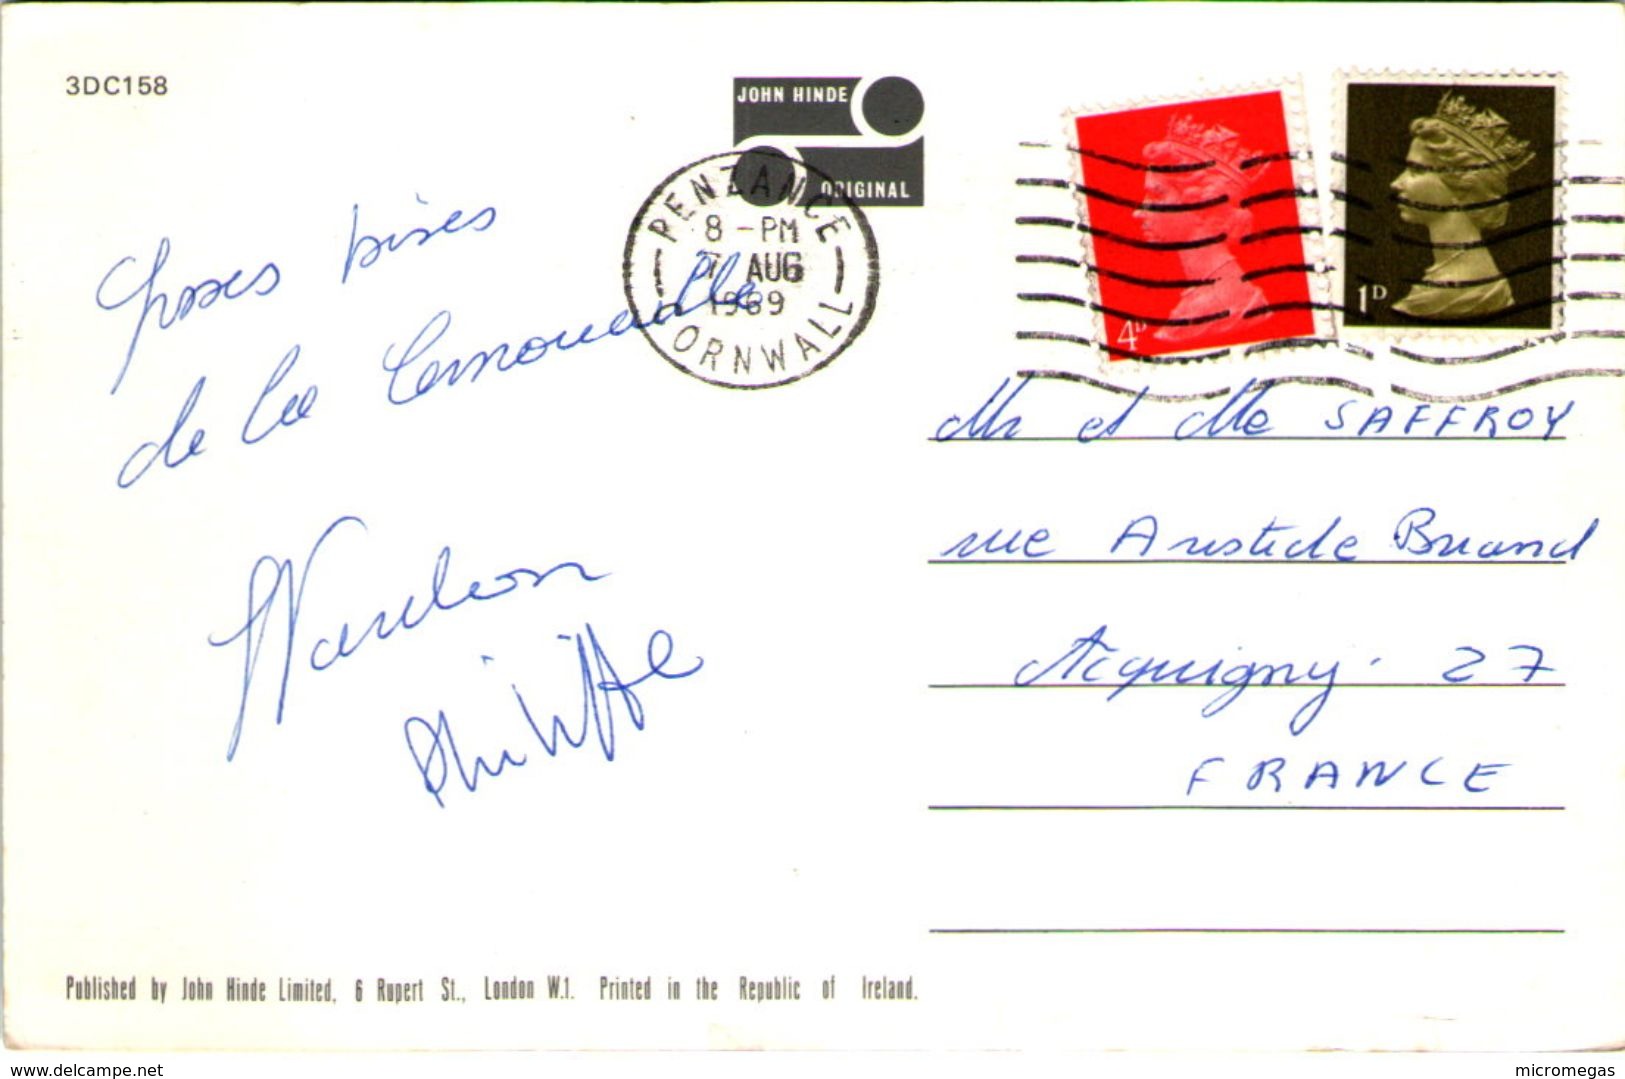 3DC158
JOHN HINDE
ORIGINAL
PENZANCE
8 - PM
7 AUG
1969
CORNWALL
4D
1D
Grosses bises
de la Cornouaille
Philippe
Mr et Me SAFFROY
rue Aristide Briand
Acquigny. 27
FRANCE
Published by John Hinde Limited, 6 Rupert St., London W.1. Printed in the Republic of Ireland.
www.delcampe.net
micromegas